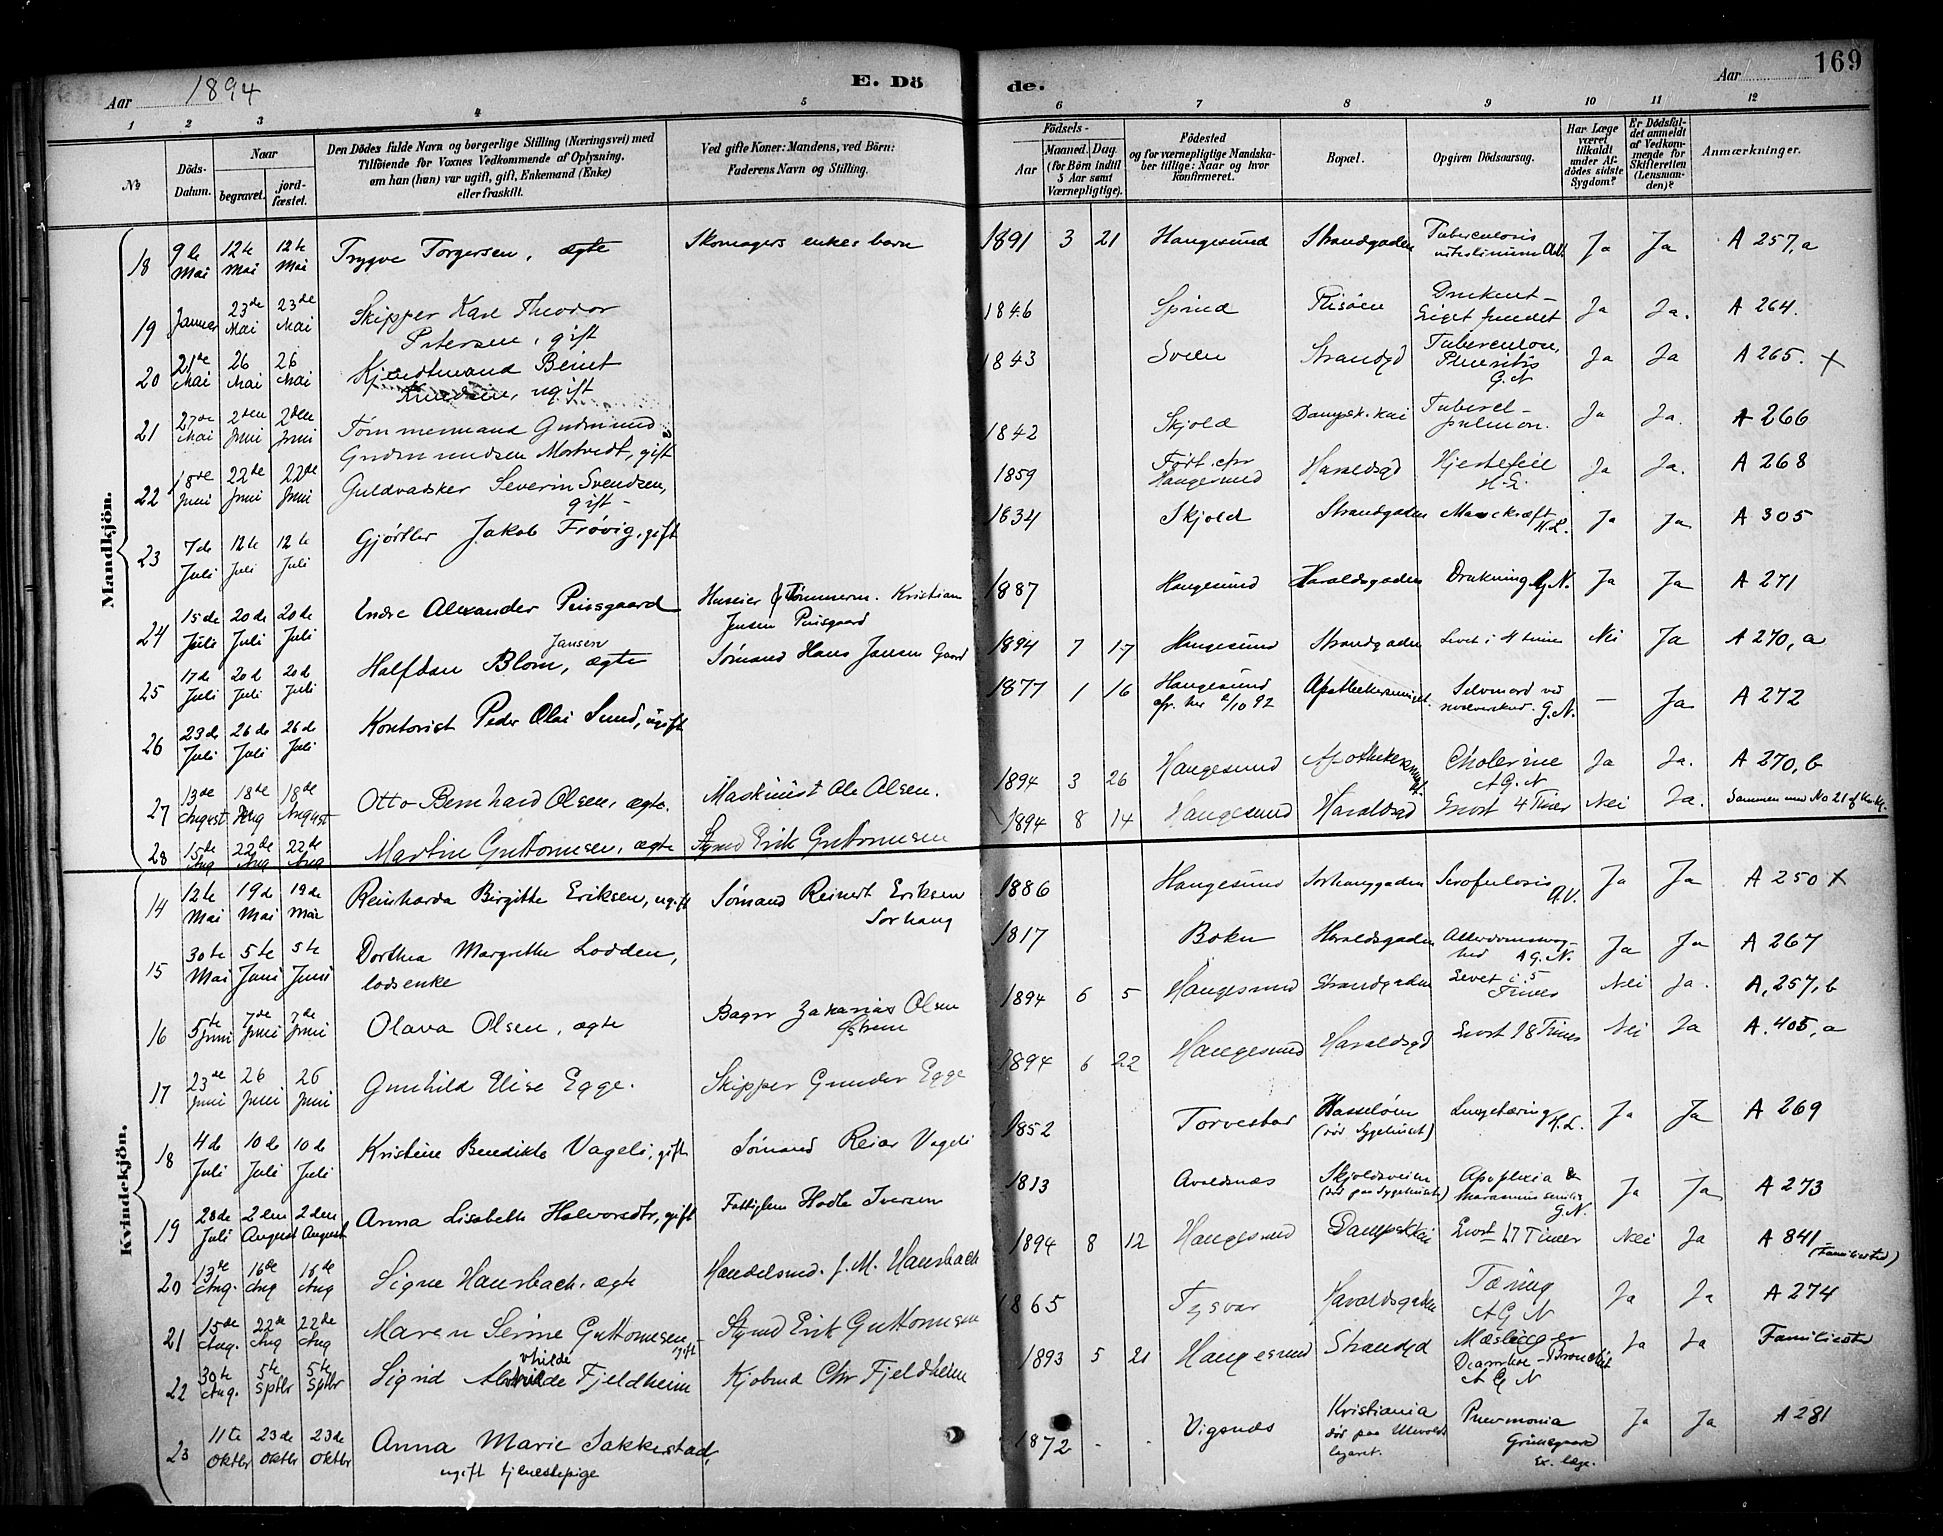 Aar 1894 E. Döde. Aar 169
1 2 3 4 5 6 7 8 9 10 11 12
№
Döds-Datum.
Naar
begravet.
jordfæstet.
Den Dödes fulde Navn og borgerlige Stilling (Næringsvei) med
Tilföiende for Voxnes Vedkommende af Oplysning,
om han (hun) var ugift, gift, Enkemand (Enke)
eller fraskilt.
Ved gifte Koner: Mandens, ved Börn:
Faderens Navn og Stilling.
Födsels-
Aar
Maaned. Dag.
(for Börn indtil
5 Aar samt
Værnepligtige).
Födested
og for værnepligtige Mandska-
ber tillige: Naar og hvor
konfirmeret.
Bopæl.
Opgiven Dödsaarsag.
Har Læge
været
tilkaldt
under Af-
dödes sidste
Sygdom?
Er Dödsfal-
det anmeldt
af Vedkom-
mende for
Skifteretten
(Lensman-
den)?
Anmærkninger.
Mandkjön.
18 9de Mai 12te Mai 12te Mai Trygve Torgersen, ægte Skomagers enkes barn 1891 3 21 Haugesund Strandgaden Tuberculosis Ja Ja A 257, a
19 Januar 23de Mai 23de Mai Skipper Karl Theodor
Petersen, gift 1846 Spind Risöen Druknet - Liget fundet Ja Ja. A 264.
20 21de Mai 26 Mai 26 Mai Bernt
Knudsen, ugift 1843 Sveen Strandgd Tuberculon, Pleuritis G. N Ja Ja A 265. +
21 27de Mai 2den Juni 2den Juni Tömmermand Gudmund
Gudmundsen Mortvedt, gift 1842 Skjold Dampsk. kai Tubercl- pulmon. Ja Ja. A 266
22 18de Juni 22de Juni 22de Juni Guldvadsker Severin Svendsen,
gift - 1859 Haugesund Haraldsgd Hjertefeil Ja Ja. A 268
23 7de Juli 12te Juli 12te Juli Gjörtler Jakob Frövig, gift 1834 Skjold Strandgaden K. L. Ja Ja A 305
24 15de Juli 20de Juli 20de Juli Endre Alexander Puisgaard Huseier Tömmerm. Kristian
Jensen Puisgaard 1887 Haugesund Haraldsgaden Drukning G. N. Ja Ja A 271
25 17de Juli 20de Juli 20de Juli Halfdan Blom Jansen, ægte Sömand Hans Jansen Gaard 1894 7 17 Haugesund Strandgaden Levet i Nei Ja A 270, a
26 23de Juli 26de Juli 26de Juli Kontorist Peder Olai Sund, ugift 1877 1 16 Haugesund 2/10 92 Selvmord ved G. N. - Ja A 272
27 13de August 18de Aug 18de August Otto Bernhard Olsen, ægte. Maskinist Ole Olsen. 1894 3 26 Haugesund Cholerine A G. N Ja Ja. A 270, b
28 15de Aug 22de Aug 22de Aug Martin Guttormsen, ægte Styrmd Erik Guttormsen 1894 8 14 Haugesund Haraldsgd Levet 4 Timer Nei Ja. Sammen med No 21 af Kvk.
Kvindekjön.
14 12te Mai 19de Mai 19de Mai Reinharda Birgitte Eriksen, ugift Sömand Reinert Eriksen
Sorhaug 1886 Haugesund Sorhauggaden Scrofulosis A.V. Ja Ja A 250 +
15 30te Mai 5te Juni 5te Juni Dorthea Margrethe Lodden,
lodsenke 1817 Bokn Haraldsgaden A G. N. Ja Ja A 267
16 5te Juni 7de Juni 7de Juni Olava Olsen, ægte Bager Zakarias Olsen 1894 6 5 Haugesund Strandgaden Levet i 5 Timer Nei Ja. A, 257, b
17 23de Juni 26 Juni 26 Juni Gunhild Elise Egge. Skipper Gunder Egge 1894 6 22 Haugesund Haraldsgd Levet 18 Timer Nei Ja A. 405, a
18 4de Juli 10de Juli 10de Juli Kristine Benedikte Vageli, gift Sömand Reiar Vageli 1852 Torvestad Hasselöen (död Sygehuset) Lungetæring K. L. Ja Ja A 269
19 28de Juli 2den August 2den August Anna Lisabeth Halvorsdtr, gift Fattiglem Hodle Iversen 1813 Avaldsnæs Skjoldsveien (död paa Sygehuset) Apoplexia & Marasmus senilis G. N. Ja Ja A 273
20 13de Aug. 16de Aug 16de Aug Signe Hausbach, ægte Handelsmd. J. M. Hausbach 1894 8 12 Haugesund Dampskkai Levet 17 Timer Nei Ja A 841 (Familiested)
21 15de Aug. 22de Aug 22de Aug Maren Serine Guttormsen, gift Styrmd Erik Guttormsen 1865 Tysvær Haraldsgaden Tæring A G N Ja Ja A 274
22 30te Aug. 5te Sptbr 5te Sptbr Sigrid Alvhilde Fjeldheim Kjobmd Chr Fjeldheim 1893 5 21 Haugesund Strandgd Mæslinger Diarrhoe - Bronchit A G N Ja Ja Familiested
23 11te Oktbr 23de Oktbr 23de Oktbr Anna Marie Sakkestad,
ugift tjenestepige 1872 - - Vigsnæs Kristiania död paa Ullevold lazaret. Pneumonia Grünegaard Ex. læge. Ja Ja A 281